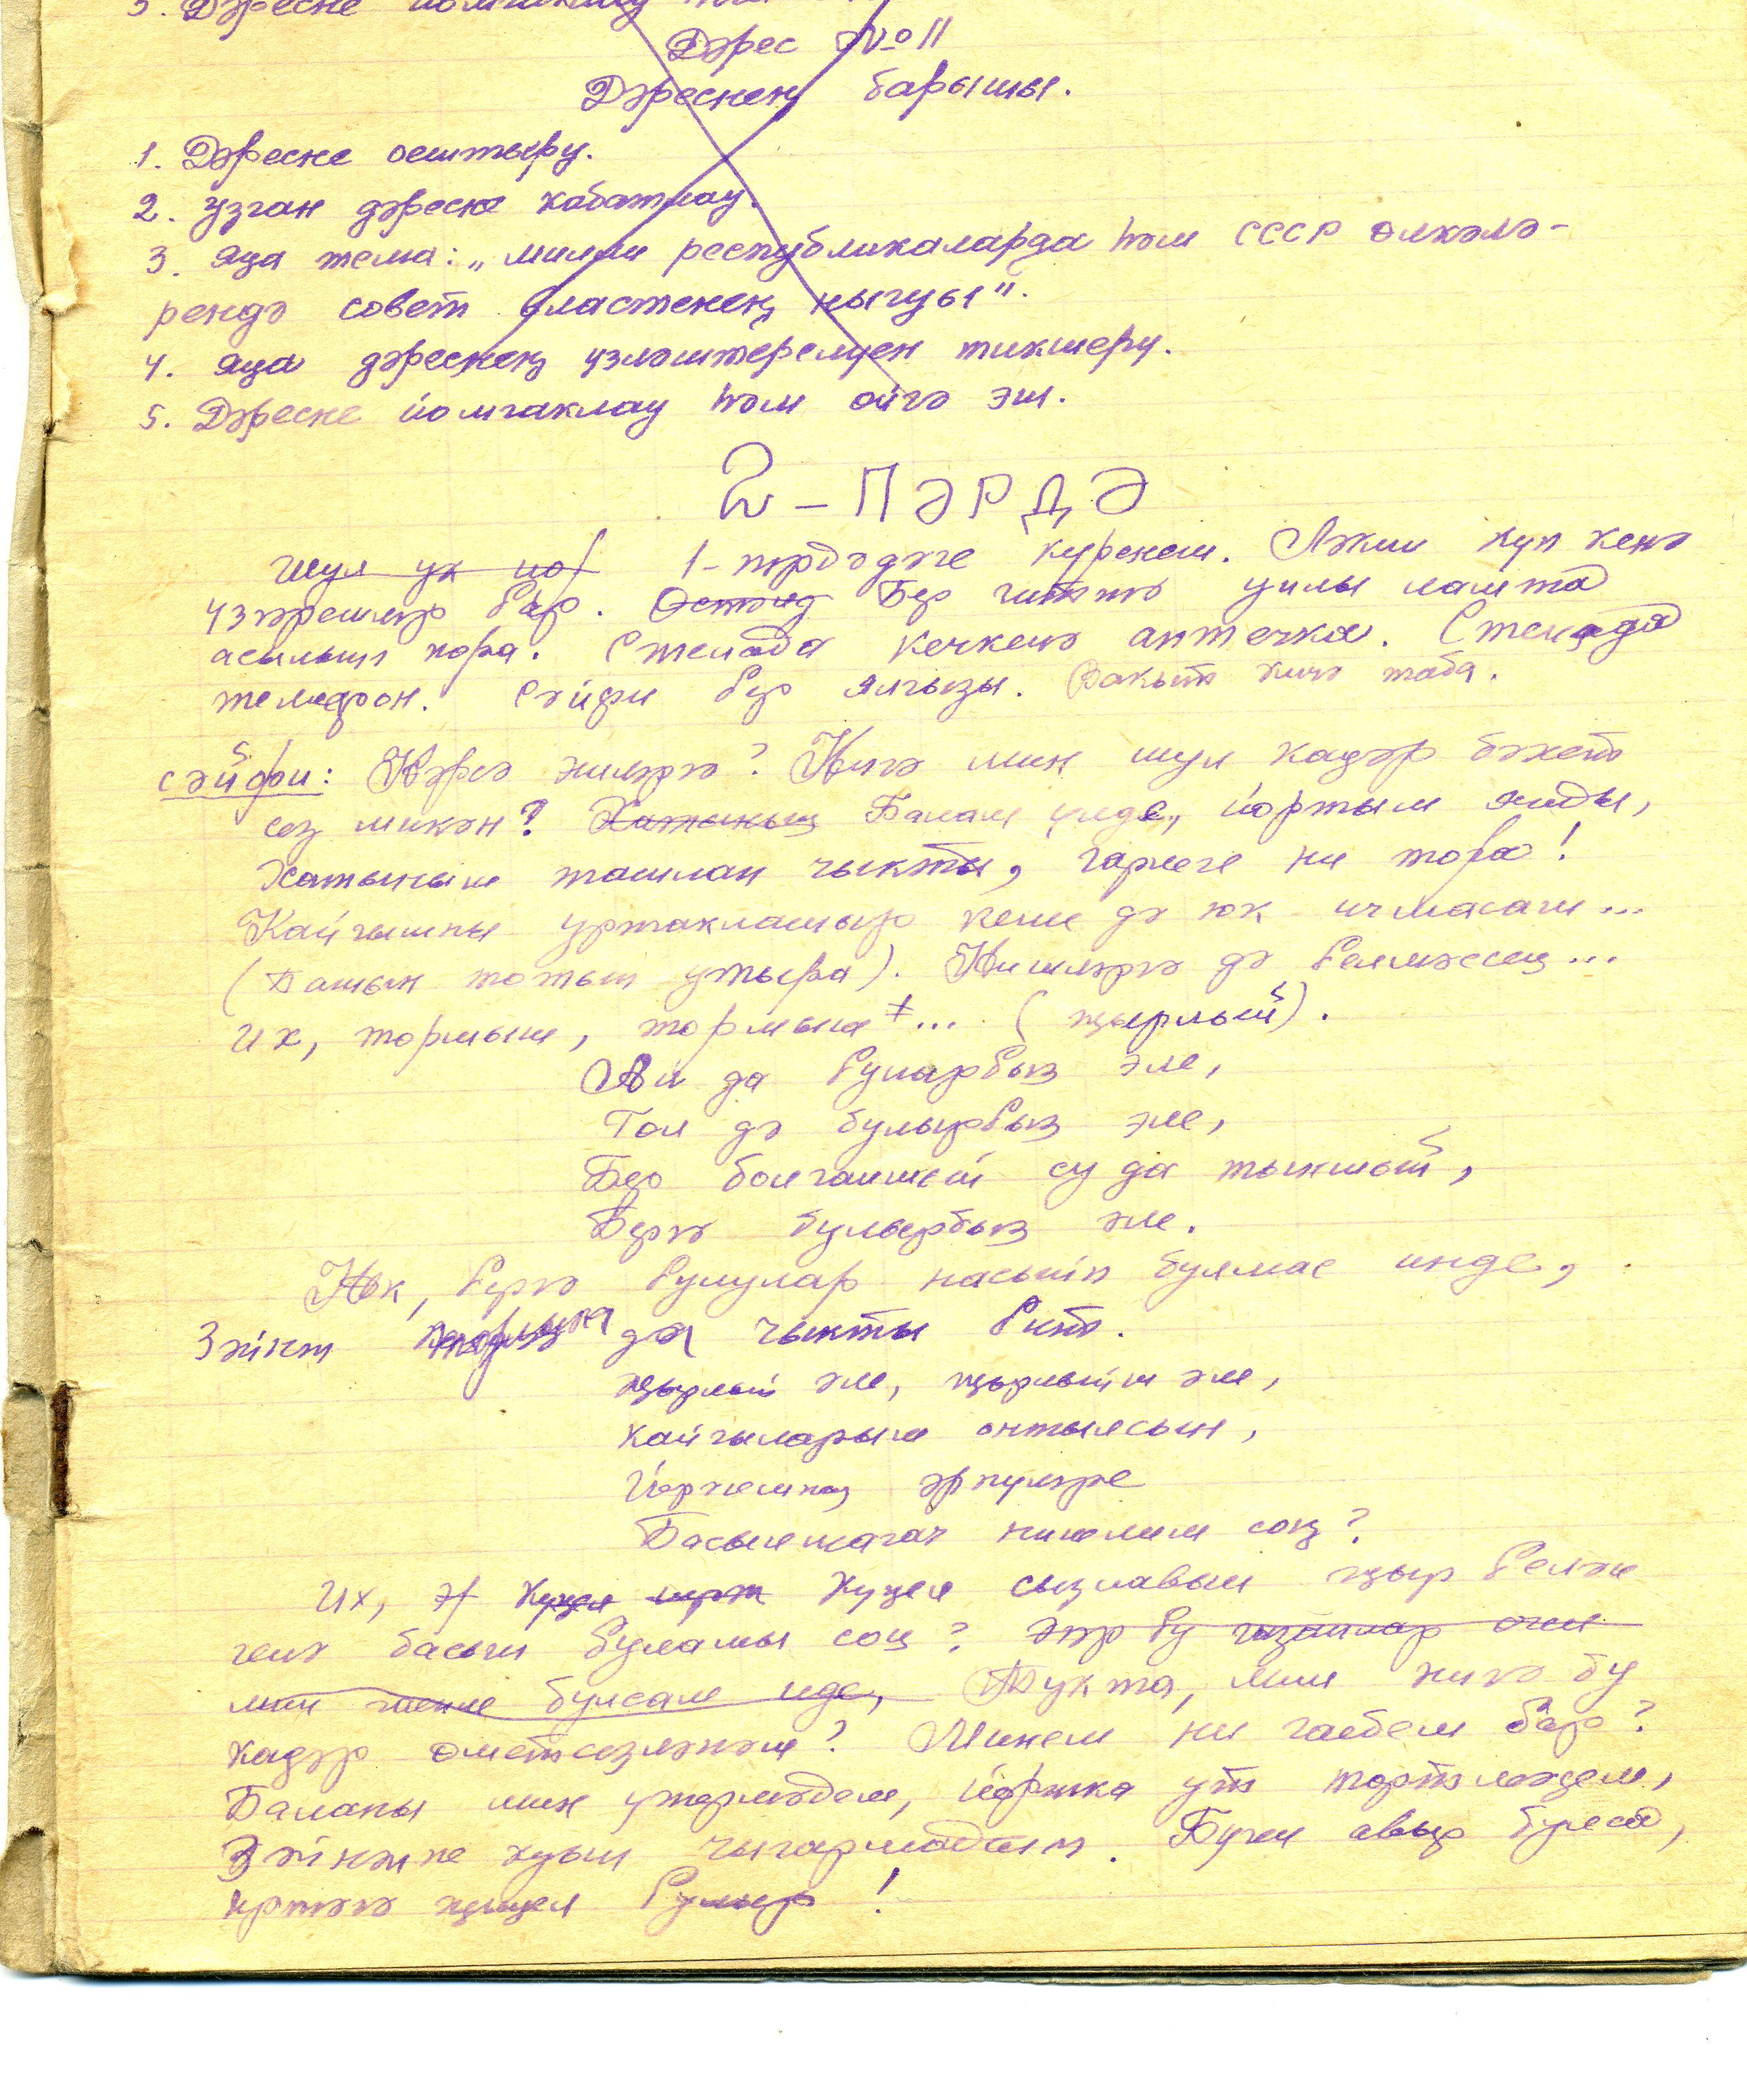 5. Дәресне йомгаклау
Дәрес №11
Дәреснең барышы.
1. Дәресне оештыру.
2. Узган дәресне кабатлау.
3. Яңа тема: „Милли республикаларда һәм СССР өлкәлә-
рендә совет властенең ныгуы".
4. Яңа дәреснең үзләштерелүен тикшерү.
5. Дәресне йомгаклау һәм өйгә эш.
2 - ПӘРДӘ
Шул ук 1-пәрдәдәге күренеш. Ләкин күп кенә
үзгәрешләр бар. Өстәлд Бер читтә уелы лампа
асылып тора. Стенада кечкенә аптечка. Стенада
телефон. Сәйфи бер ялгызы. Вакыт кичә таба.
Сәйфи: Нәрсә эшләргә? Нигә мин шул кадәр бәхет
сез микән? Хатының Балам үлде, йортым янды,
Хатыным ташлап чыкты, гарьлеге ни тора!
Кайгымны уртаклашыр кеше дә юк ичмасам...
(Башын тотып утыра). Нишләргә дә белмәссең...
Их, тормыш, тормыш... (җырлый).
Ай да булырбыз әле,
Гөл дә булырбыз әле,
Бер болганмый су да тынмый,
Бергә булырбыз әле.
Юк, бергә булулар насыйп булмас инде,
Зәйнәп тормышка да чыкты бит.
Җырлыйм әле, җырлыйм әле,
Кайгыларым онтылсын,
Йөрәгемнең әрнүләре
Басылмагач нишлим соң?
Их, Күңел йөрт Күңел сызлавын җыр белән
генә басып буламы соң? Әгәр бу газаплар өчен
мин гаепле булсам иде, Тукта, мин нигә бу
кадәр өметсезләнәм? Минем ни гаебем бар?
Баланы мин үтермәдем, йортка ут төртмәдем,
Зәйнәпне куып чыгармадым. Бүген авыр булса,
иртәгә җиңел булыр!